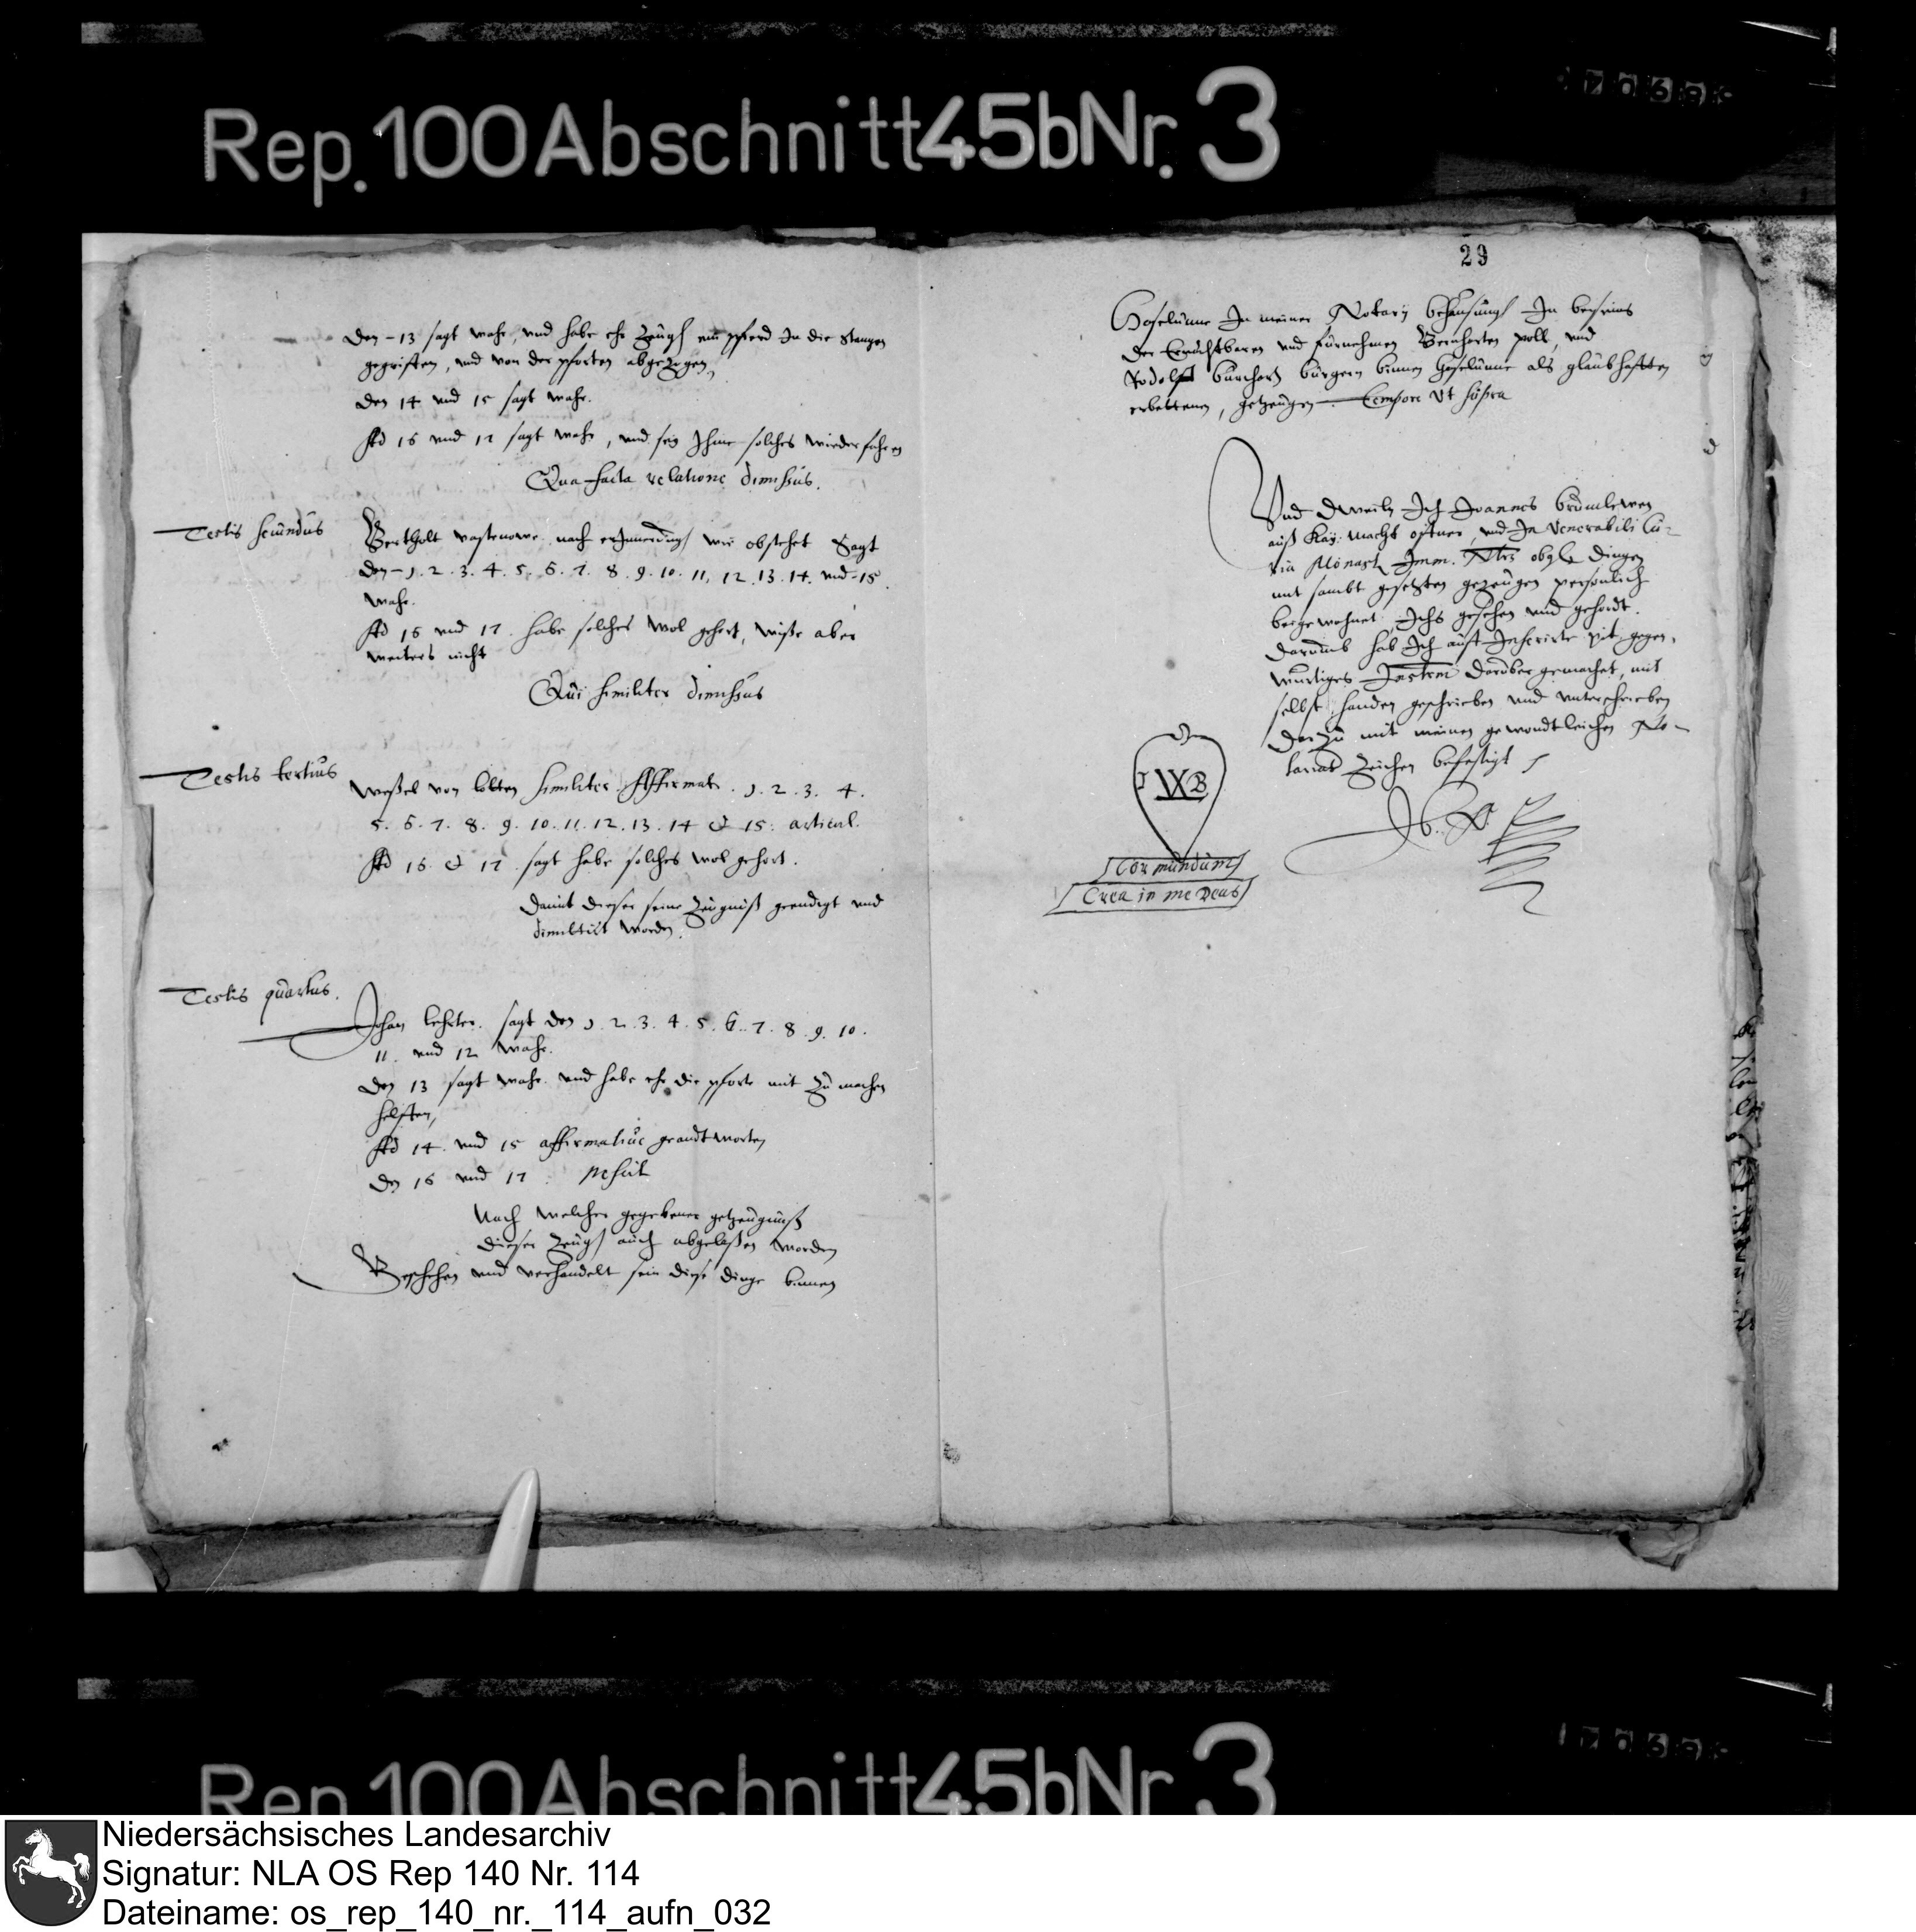 Rep.100Abschnitt45bNr.3
den 13 sagt wahr, und habe ehr Zeug ein pferd In die Stangen
gegriffen, und von der pforten abgezogen
den 14 und 15 sagt wahr.
Ad 16 und 17 sagt wahr, und sey Ihme solches wiederfahren
Qua facta relatione dimissus.
Testis secundus
Bertholt nach erinnerung wie obstehet Sagt
den 1. 2. 3. 4. 5. 6. 7. 8. 9. 10. 11. 12. 13. 14. und 15.
wahr.
Ad 16 und 17. habe solches wol gehort, wisse aber
weiters nicht
Qui similiter dimissus
Testis tertius
Weßel von similiter Affirmat. 1. 2. 3. 4.
5. 6. 7. 8. 9. 10. 11. 12. 13. 14 & 15. articul.
Ad 16. & 17. sagt habe solches wol gehort.
Damit dieser seine Zeugniß geendigt und
dimittirt worden.
Testis quartus.
Johan sagt den 1. 2. 3. 4. 5. 6. 7. 8. 9. 10.
11. und 12 wahr.
Den 13 sagt wahr und habe ehr die pforte mit Zu machen
helffen,
Ad 14. und 15 affirmative geandtworten
den 16 und 17. nescit
Nach welcher gegebener getzeugnuß
dieser Zeug auch abgelaßen worden
Geschehen und verhandelt sein diese dinge binnen
29
Haselunne In meiner Notarÿ behausung In beiseins
der Ernachtbaren und fürnehmen poll, und
Rodolff bürgern binnen Haselunne als glaubhafften
erbettenen, getzeugen. tempore ut supra
Und dweiln Ich Joannes
auß Kaÿ: Macht und In Venerabili Cu-
ria Monast. Imm. dingen
mit sambt gesetzten gezeugen persönlich
beygewohnet, Ichs gesehen und gehordt.
darumb hab Ich gegen-
wurtiges Instrm darüber gemachet, mit
selbst handen geschrieben und unterschrieben
darzu mit meinen gewondtleichen No-
tariat Zeichen befestigt
I W B
Cor mundum
Crea in me Deus
Rep.100Abschnitt45bNr.3
Niedersächsisches Landesarchiv
Signatur: NLA OS Rep 140 Nr. 114
Dateiname: os_rep_140_nr._114_aufn_032